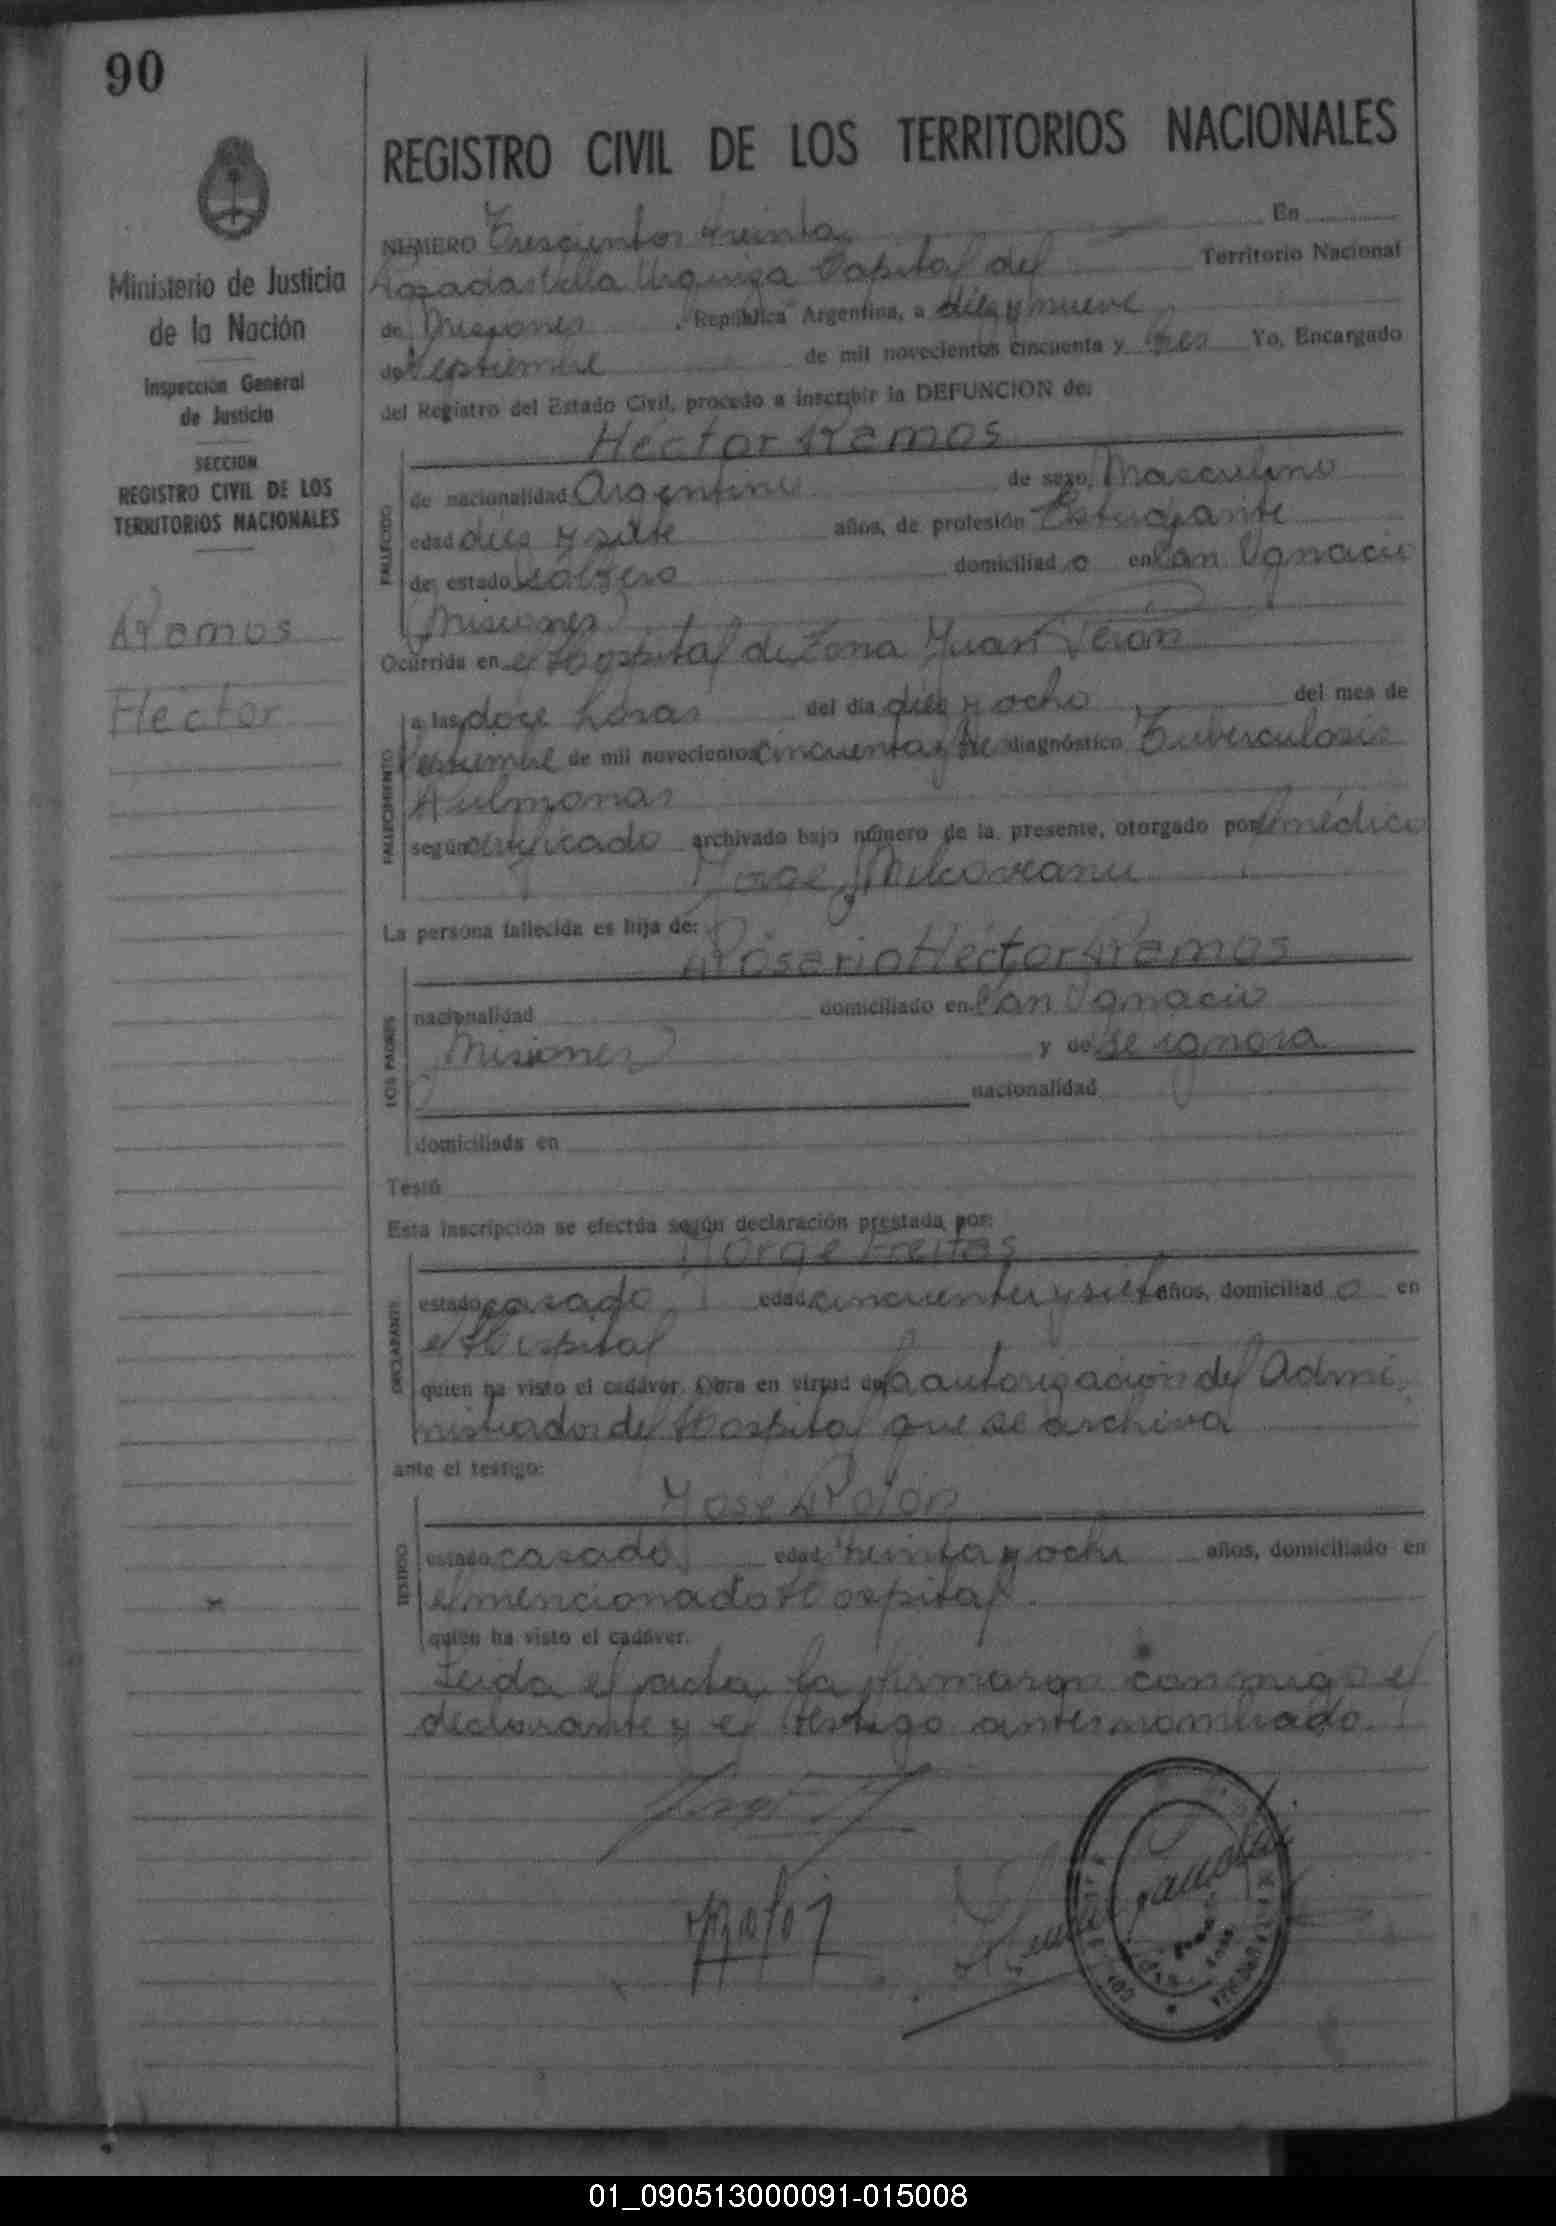 90
REGISTRO CIVIL DE LOS TERRITORIOS NACIONALES
Ministerio de Justicia
de la Nación
Inspección General
de Justicia
SECCION
REGISTRO CIVIL DE LOS
TERRITORIOS NACIONALES
Ramos
Hector
NUMERO Trescientos treinta En
Posadas Villa Urquiza Capital del Territorio Nacional
de Misiones , República Argentina, a diez y nueve
de Septiembre de mil novecientos cincuenta y tres Yo, Encargado
del Registro del Estado Civil, procedo a inscribir la DEFUNCION de:
Héctor Ramos
FALLECIDO
de nacionalidad Argentino de sexo Masculino
edad diez y siete años, de profesión Estudiante
de estado soltero domiciliad o en San Ignacio
Misiones
Ocurrida en el Hospital de Zona Juan Perón
FALLECIMIENTO
a las doce horas del día diez y ocho del mes de
Septiembre de mil novecientos cincuenta y tres diagnóstico Tuberculosis
Pulmonar
según certificado archivado bajo número de la presente, otorgado por el médico
Jorge
La persona fallecida es hija de:
Rosario Héctor Ramos
LOS PADRES
nacionalidad domiciliado en San Ignacio
Misiones y de se ignora
nacionalidad
domiciliada en
Testó
Esta inscripción se efectúa según declaración prestada por:
Jorge Freitas
DECLARANTE
estado casado edad cincuenta y siete años, domiciliad o en
el Hospital
quien ha visto el cadáver. Obra en virtud de la autorización del Admi
nistrador del Hospital que se archiva
ante el testigo:
José Rolón
TESTIGO
estado casado edad treinta y ocho años, domiciliado en
el mencionado Hospital.
quien ha visto el cadáver.
Leida el acta la firmaron conmigo el
declarante y el testigo antes nombrado.
01_090513000091-015008